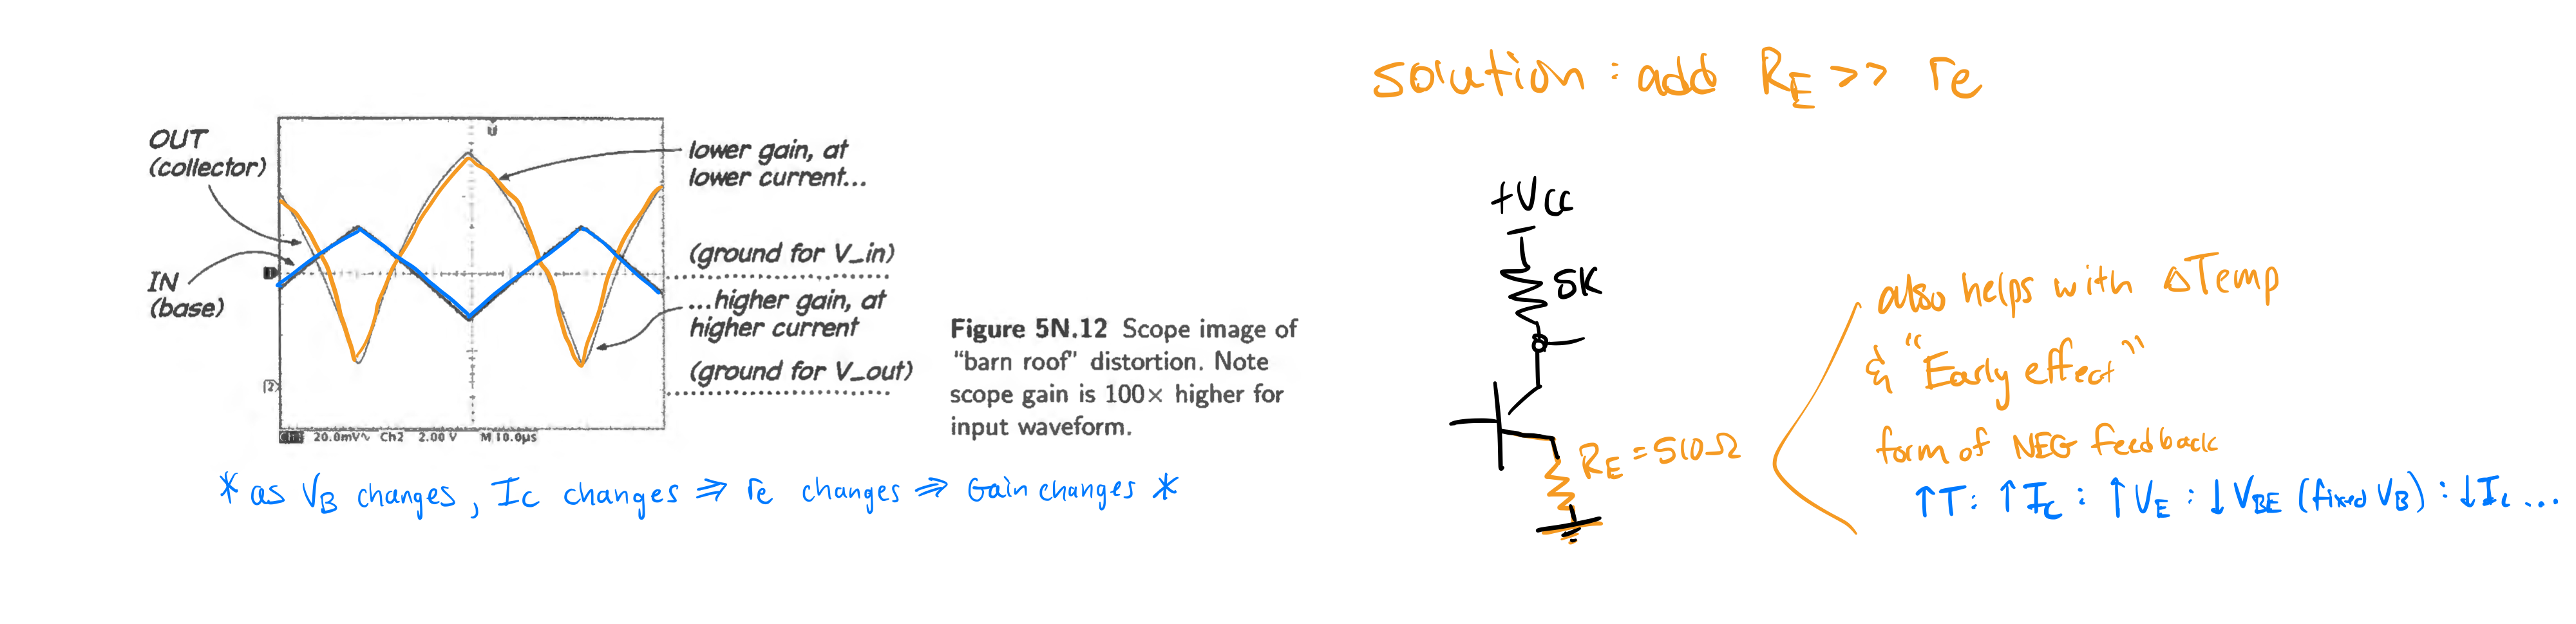 solution : add RE >> re
OUT
(collector)
IN
(base)
lower gain, at
lower current...
(ground for V_in)
...higher gain, at
higher current
(ground for V_out)
20.0mV Ch2 2.00 V M 10.0µs
Figure 5N.12 Scope image of
"barn roof" distortion. Note
scope gain is 100× higher for
input waveform.
* as VB changes, Ic changes ⇒ re changes ⇒ Gain changes *
+Vcc
5K
RE = 510Ω
also helps with ΔTemp
& "Early effect"
form of NEG feedback
↑T : ↑Ic : ↑VE : ↓VBE (fixed VB) : ↓Ic ...